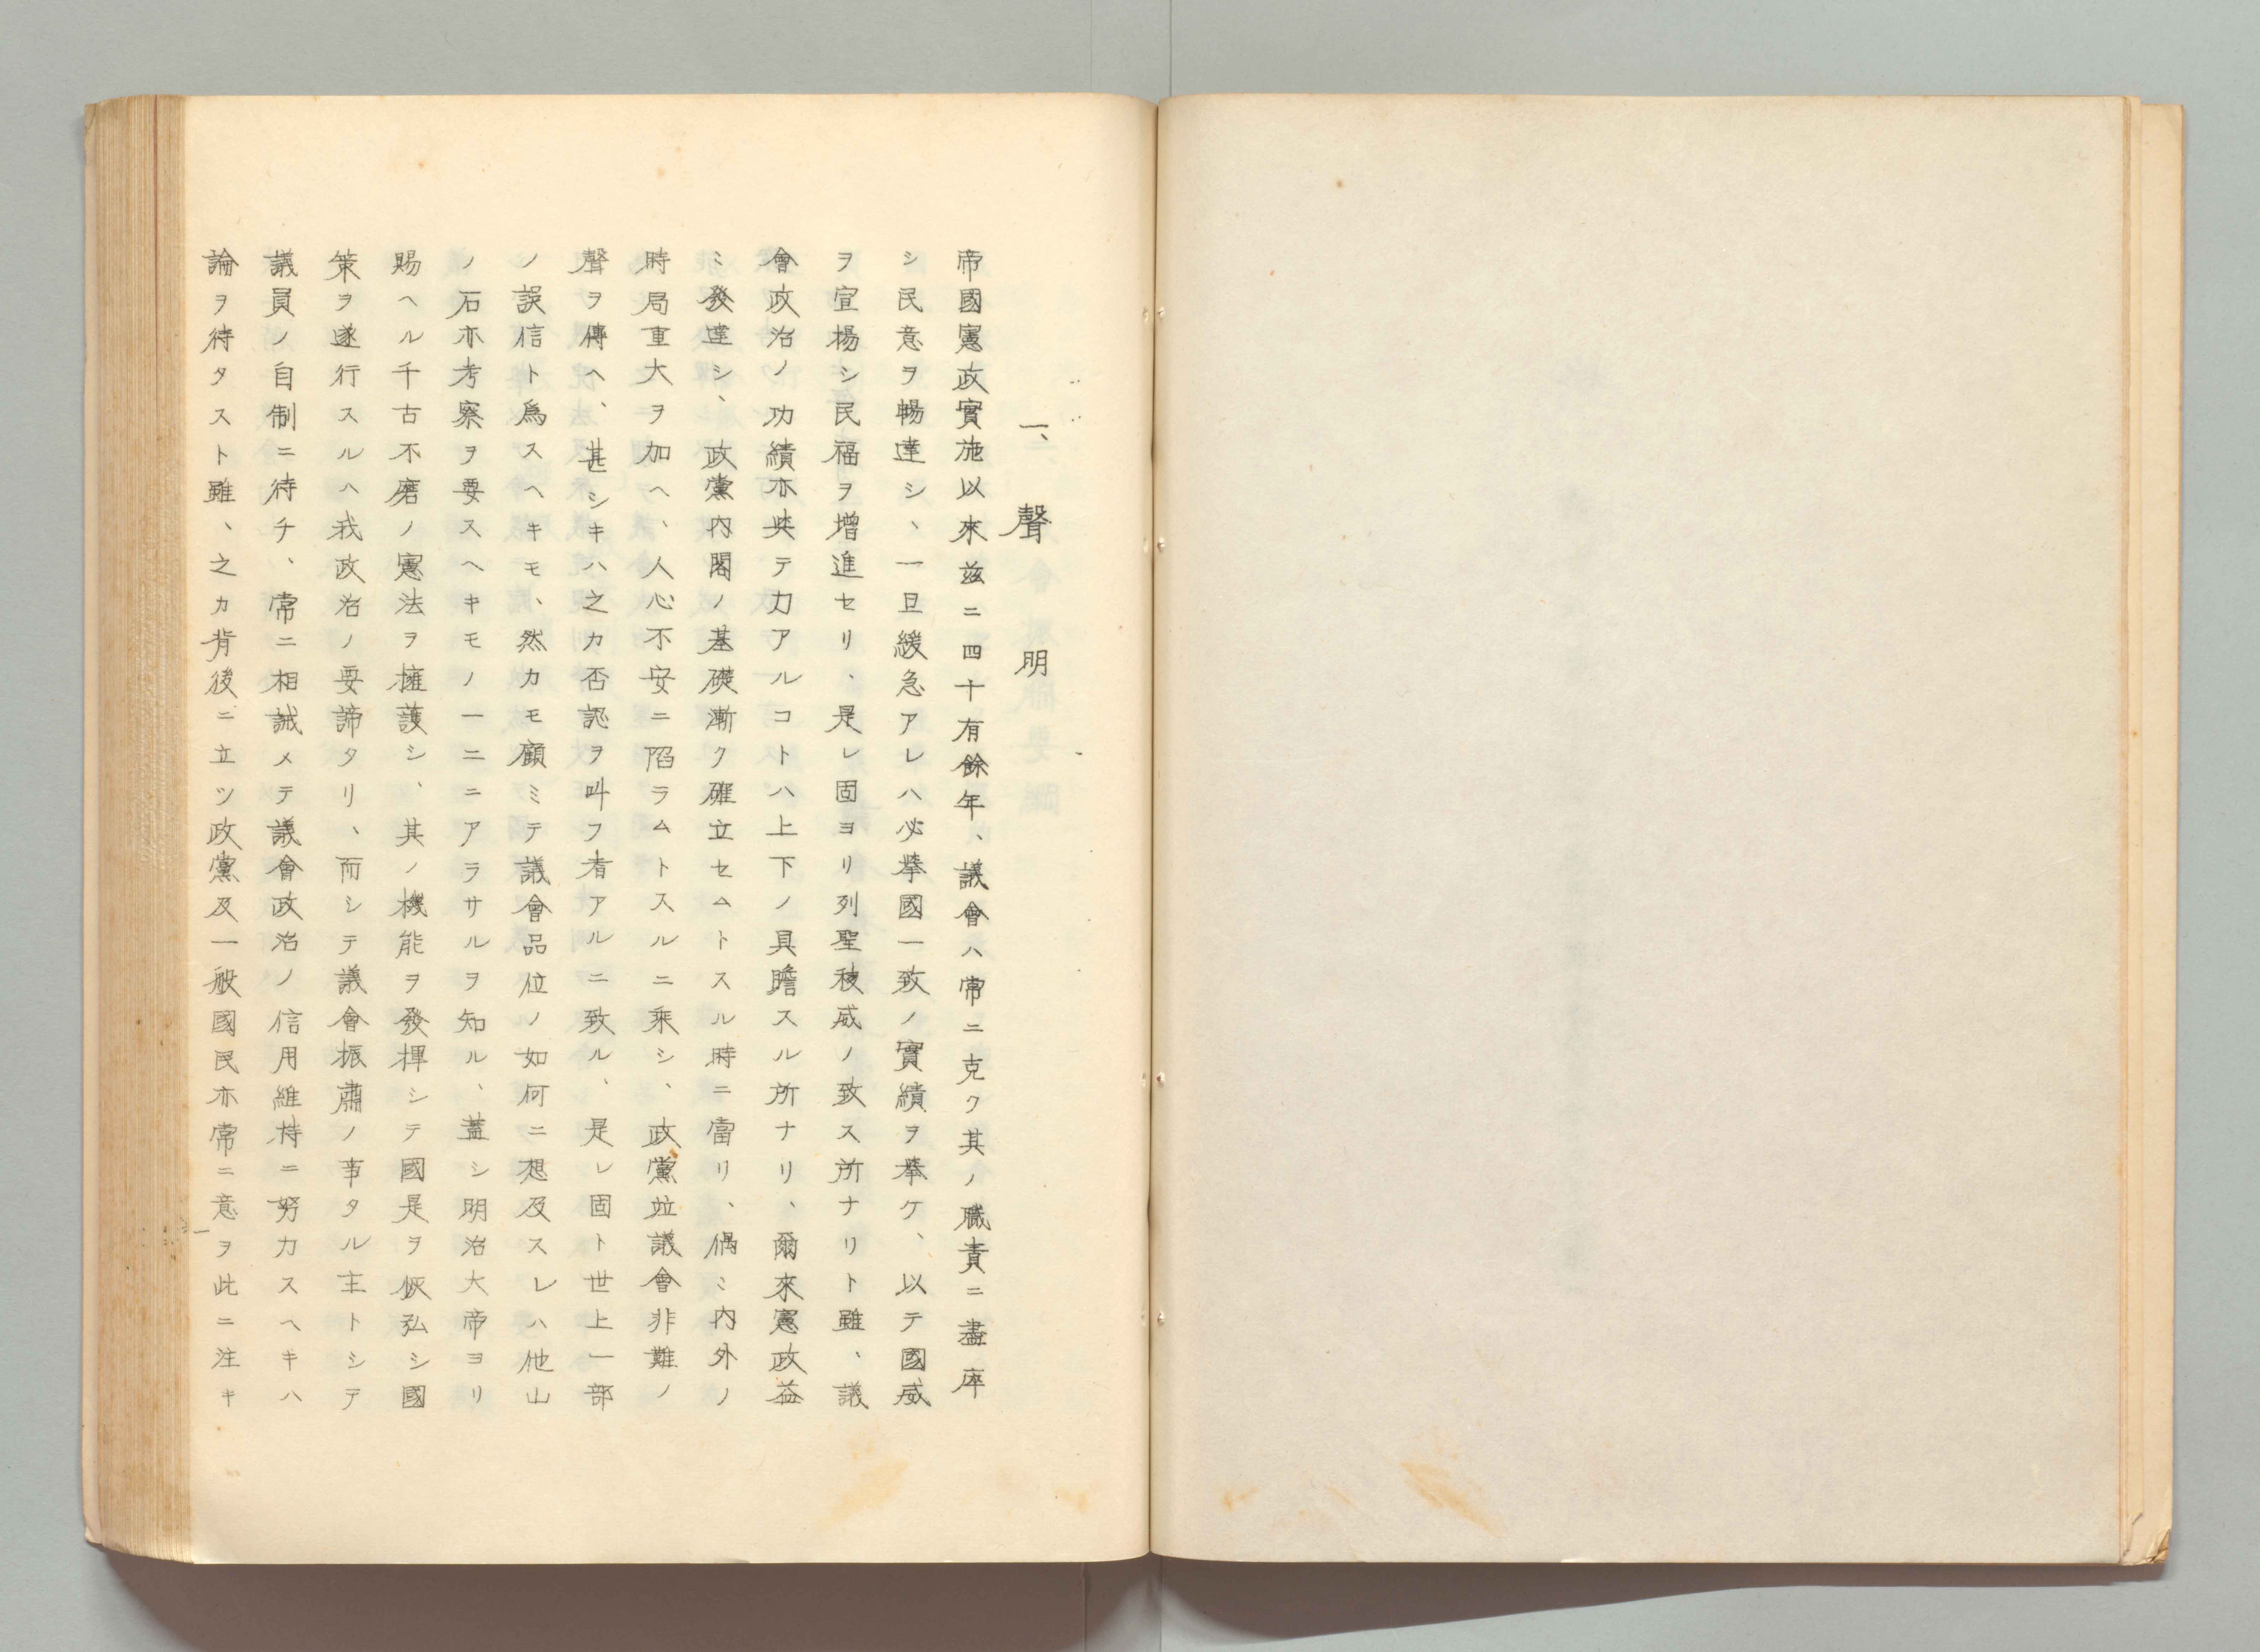 一、聲明
帝國憲政實施以來玆ニ四十有餘年、議會ハ常ニ克ク其ノ職責ニ盡瘁
シ民意ヲ暢達シ、一旦緩急アレハ必擧國一致ノ實績ヲ擧ケ、以テ國威
ヲ宣揚シ民福ヲ增進セリ、是レ固ヨリ列聖稜威ノ致ス所ナリト雖、議
會政治ノ功績亦與テ力アルコトハ上下ノ具瞻スル所ナリ、爾來憲政益
ミ發達シ、政黨內閣ノ基礎漸ク確立セムトスル時ニ當リ、偶ミ內外ノ
時局重大ヲ加ヘ、人心不安ニ陷ラムトスルニ乘シ、政黨竝議會非難ノ
聲ヲ傳ヘ、甚シキハ之カ否認ヲ叫フ者アルニ致ル、是レ固ト世上一部
ノ誤信ト爲スヘキモ、然カモ顧ミテ議會品位ノ如何ニ想及スレハ他山
ノ石亦考察ヲ要スヘキモノ一ニニアラサルヲ知ル、蓋シ明治大帝ヨリ
賜ヘル千古不磨ノ憲法ヲ擁護シ、其ノ機能ヲ發揮シテ國是ヲ恢弘シ國
策ヲ遂行スルハ我政治ノ要諦タリ、而シテ議會振肅ノ事タル主トシテ
議員ノ自制ニ待チ、常ニ相誡メテ議會政治ノ信用維持ニ努力スヘキハ
論ヲ待タスト雖、之カ背後ニ立ツ政黨及一般國民亦常ニ意ヲ此ニ注キ
一